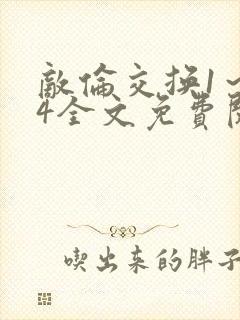 敵倫交換1~
4全文免費閱
喫出来的胖子